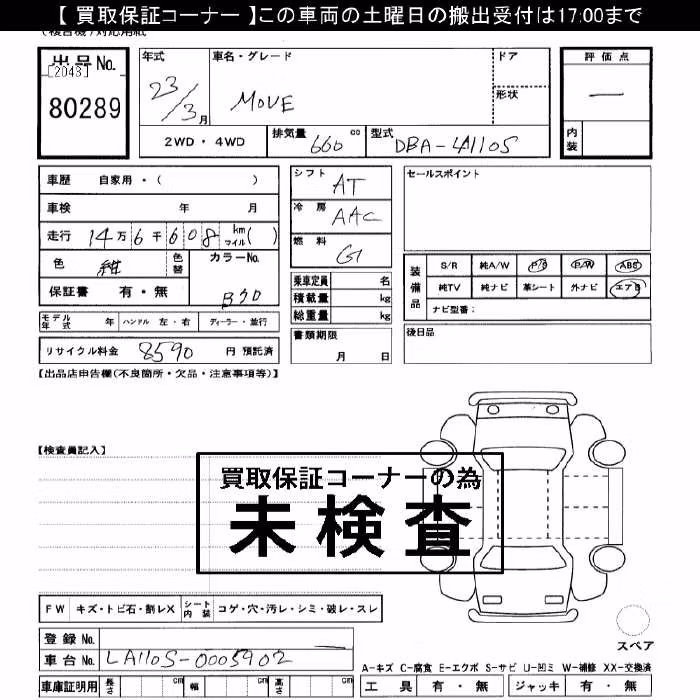 【 買取保証コーナー 】この車両の土曜日の搬出受付は17:00まで
(複合機)対応用紙
出品No. 年式 車名・グレード ドア 評価点
[2043]
80289 23/3月 MOVE 形状 —
2WD・4WD 排気量 660 cc 型式 DBA-LA110S 内装
車歴 自家用・( ) シフト AT セールスポイント
車検 年 月 冷房 AAC
走行 14万6千608 km マイル( ) 燃料 G
色 紺 色替 カラーNo. 乗車定員 名 装備品 S/R 純A/W P/S P/W ABS
保証書 有・無 B70 積載量 kg 純TV 純ナビ 革シート 外ナビ エアB
総重量 kg ナビ型番：
モデル年式 年 ハンドル 左・右 ディーラー・並行 書類期限 後日品
リサイクル料金 8590 円 預託済 月 日
【出品店申告欄(不良箇所・欠品・注意事項等)】
【検査員記入】
買取保証コーナーの為
未検査
FW キズ・トビ石・割レX シート内装 コゲ・穴・汚レ・シミ・破レ・スレ
登録No. スペア
車台No. LA110S-0005902
A-キズ C-腐食 E-エクボ S-サビ U-凹ミ W-補修 XX-交換済
車庫証明用 長さ cm 幅 cm 高さ cm 工具 有・無 ジャッキ 有・無